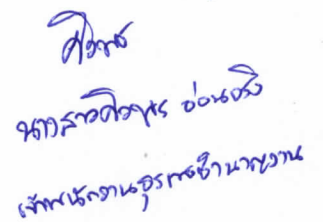 ศิวพร
นางสาวศิวพร อ่อนจริง
เจ้าพนักงานธุรการชำนาญงาน